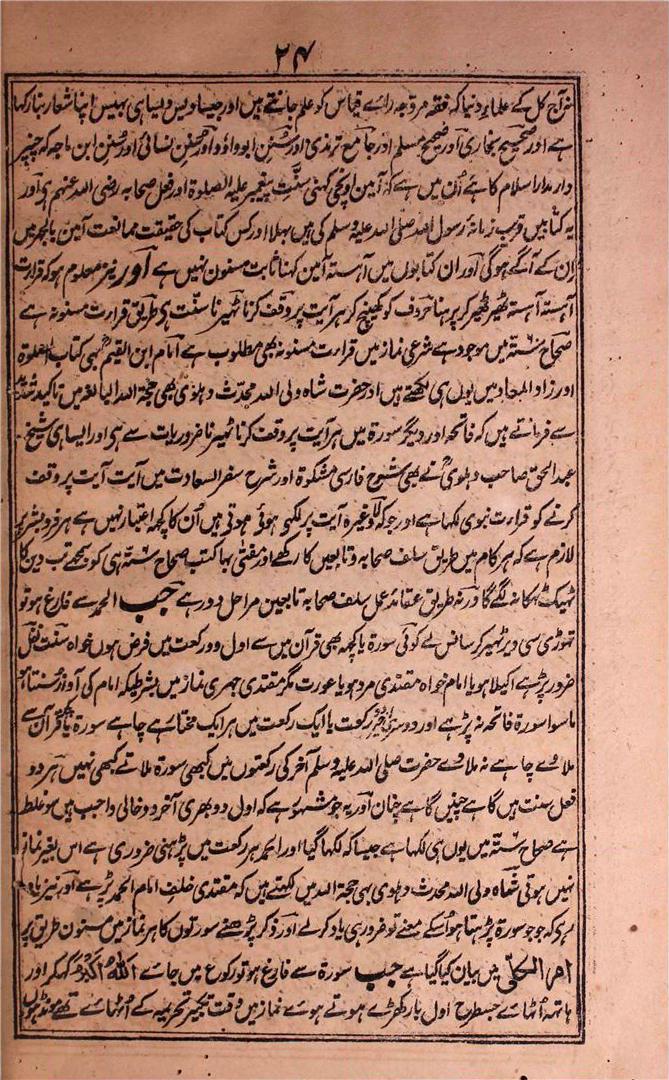 ۲۴
نہ آج کل کے علماء دنیا کہ فقہ مروجہ رائے قیاس کو علم جانتے ہیں اور جیسا دیس ویسا ہی بھیس اپنا شعار بنا رکھا
ہے اور صحیح بخاری اور صحیح مسلم اور جامع ترمذی اور سنن ابو داؤد اور سنن نسائی اور سنن ابن ماجہ کہ جنپر
دار مدار اسلام کا ہے اُن میں ہے کہ آمین اونچی کہنی سنت پیغمبر علیہ الصلوۃ اور فعل صحابہ رضی اللہ عنہم ہے اور
یہ کتابیں قریب زمانۂ رسول اللہ صلی اللہ علیہ وسلم کی ہیں بھلا اور کس کتاب کی حقیقت ممانعت آمین بالجہر میں
اِن کے آگے ہوگی اور ان کتابوں میں آہستہ آمین کہنا ثابت مسنون نہیں ہے اور نیز معلوم ہو کہ قرات
آہستہ آہستہ ٹھیر ٹھیر کر پڑہنا حروف کو کھینچ کر ہر آیت پر وقف کرنا ٹھیرنا سنت ہے طریق قرارت مسنونہ ہے
صحاح ستہ میں موجود ہے شرعی نماز میں قرارت مسنونہ بھی مطلوب ہے امام ابن القیم بھی کتاب الصلوۃ
اور زاد المعاد میں یوں ہی لکھتے ہیں اور حضرت شاہ ولی اللہ محدث دہلوی بھی حجۃ اللہ البالغہ میں تاکید شدید
سے فرماتے ہیں کہ فاتحہ اور دیگر سورۃ میں ہر آیت پر وقف کرنا ٹھیرنا ضروریات سے ہے اور ایسا ہی شیخ
عبد الحق صاحب دہلوی نے بھی شروح فارسی مشکوۃ اور شرح سفر السعادت میں آیت آیت پر وقف
کرنے کو قرارت نبوی لکھا ہے اور جو کہ لا وغیرہ آیت پر لکھی ہوئی ہوتی ہیں اُن کا کچھ اعتبار نہیں ہے ہر فرد بشر پر
لازم ہے کہ ہر کام میں طریق سلف صحابہ وتابعین کا رکھے اور مفتی بہا کتب صحاح ستہ ہی کو سمجھے تب دین کا
ٹھیک ٹھکانہ لگے گا ورنہ طریق عقائد عمل سلف صحابہ تابعین مراحل دور ہے جب الحمد سے فارغ ہو تو
تھوڑی سی دیر ٹھیر کر سانس لے کوئی سورۃ یا کچھ بھی قرآن میں سے اول دو رکعت میں فرض ہوں خواہ سنت نفل
ضرور پڑہے اکیلا ہو یا امام خواہ مقتدی مرد ہو یا عورت مگر مقتدی جہری نماز میں بشرطیکہ امام کی آواز سنتا ہو
ماسوا سورۃ فاتحہ نہ پڑہے اور دوسری اخیر رکعت یا ایک رکعت میں ہر ایک مختار ہے چاہے سورۃ یا کچھ قرآن سے
ملاوے چاہے نہ ملاوے حضرت صلی اللہ علیہ وسلم آخر کی رکعتوں میں کبھی سورۃ ملاتے کبھی نہیں ہر دو
فعل سنت ہیں گاہے چنیں گاہے چناں اور یہ جو مشہور ہے کہ اول دو بھری آخر دو خالی واجب ہیں سو غلط
ہے صحاح ستہ میں یوں ہی لکھا ہے جیسا کہ لکھا گیا اور الحمد ہر رکعت میں پڑہنی ضروری ہے اس بغیر نماز
نہیں ہوتی شاہ ولی اللہ محدث دہلوی بھی حجۃ اللہ میں لکھتے ہیں کہ مقتدی خلف امام الحمد پڑہے اور نیز یاد
رہے کہ جو جو سورۃ پڑہتا ہو اُسکے معنے تو ضرور ہی یاد کر لے اور ذکر پڑہنے سورتوں کا ہر نماز میں مسنون طریق پر
میں بیان کیا گیا ہے جب سورۃ سے فارغ ہو تو رکوع میں جائے اَللّٰہُ اَکْبَرُ کہکر اور
ہاتھہ اُٹھائے جسطرح اول بار کھڑے ہوتے ہوئے نماز میں وقت تکبیر تحریمہ کے اُٹھائے تھے مونڈہوں